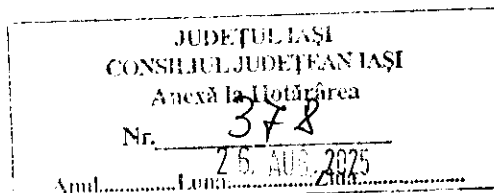 JUDEŢUL IAŞI
CONSILIUL JUDEŢEAN IAŞI
Anexă la Hotărârea
Nr. 378
26. AUG. 2025
Anul............Luna............Ziua............